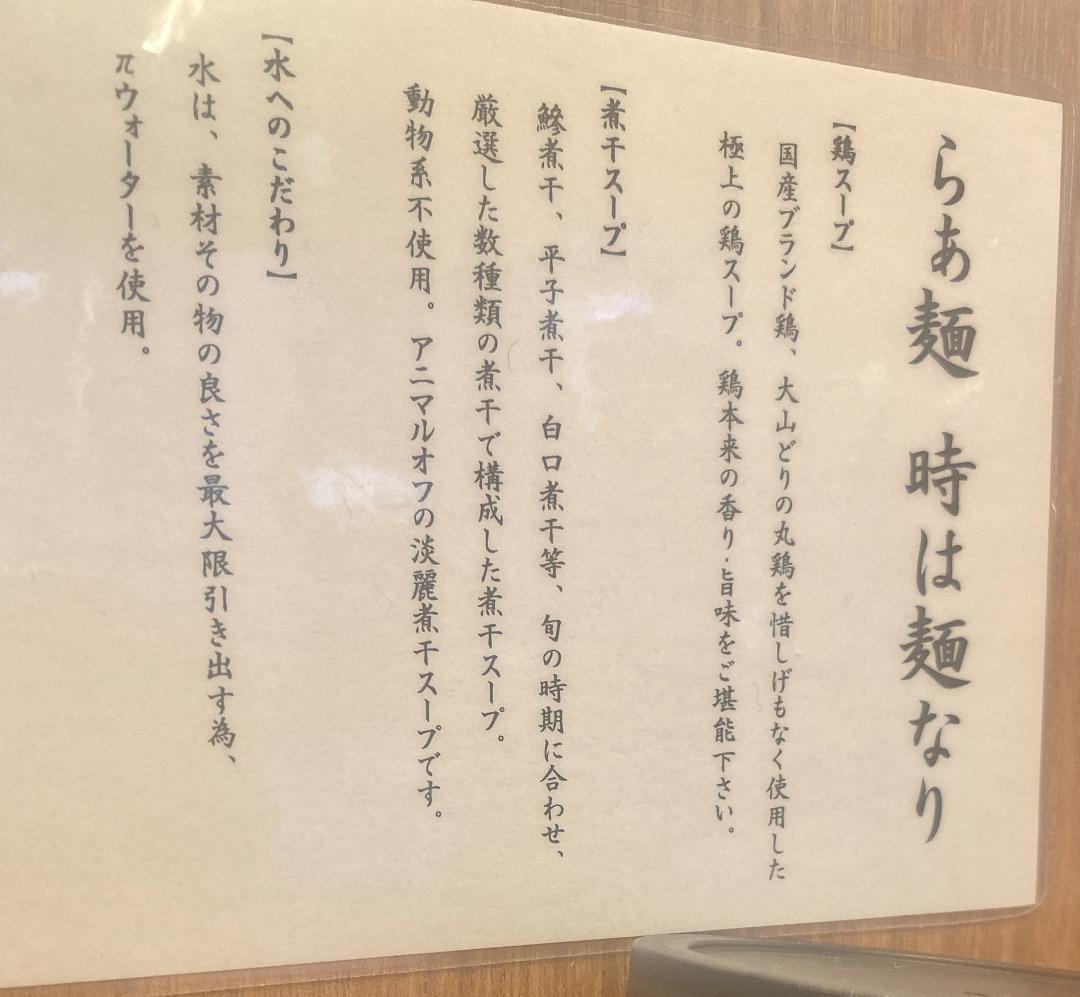 らぁ麺 時は麺なり
【鶏スープ】
国産ブランド鶏、大山どりの丸鶏を惜しげもなく使用した
極上の鶏スープ。鶏本来の香り・旨味をご堪能下さい。
【煮干スープ】
鯵煮干、平子煮干、白口煮干等、旬の時期に合わせ、
厳選した数種類の煮干で構成した煮干スープ。
動物系不使用。アニマルオフの淡麗煮干スープです。
【水へのこだわり】
水は、素材その物の良さを最大限引き出す為、
πウォーターを使用。